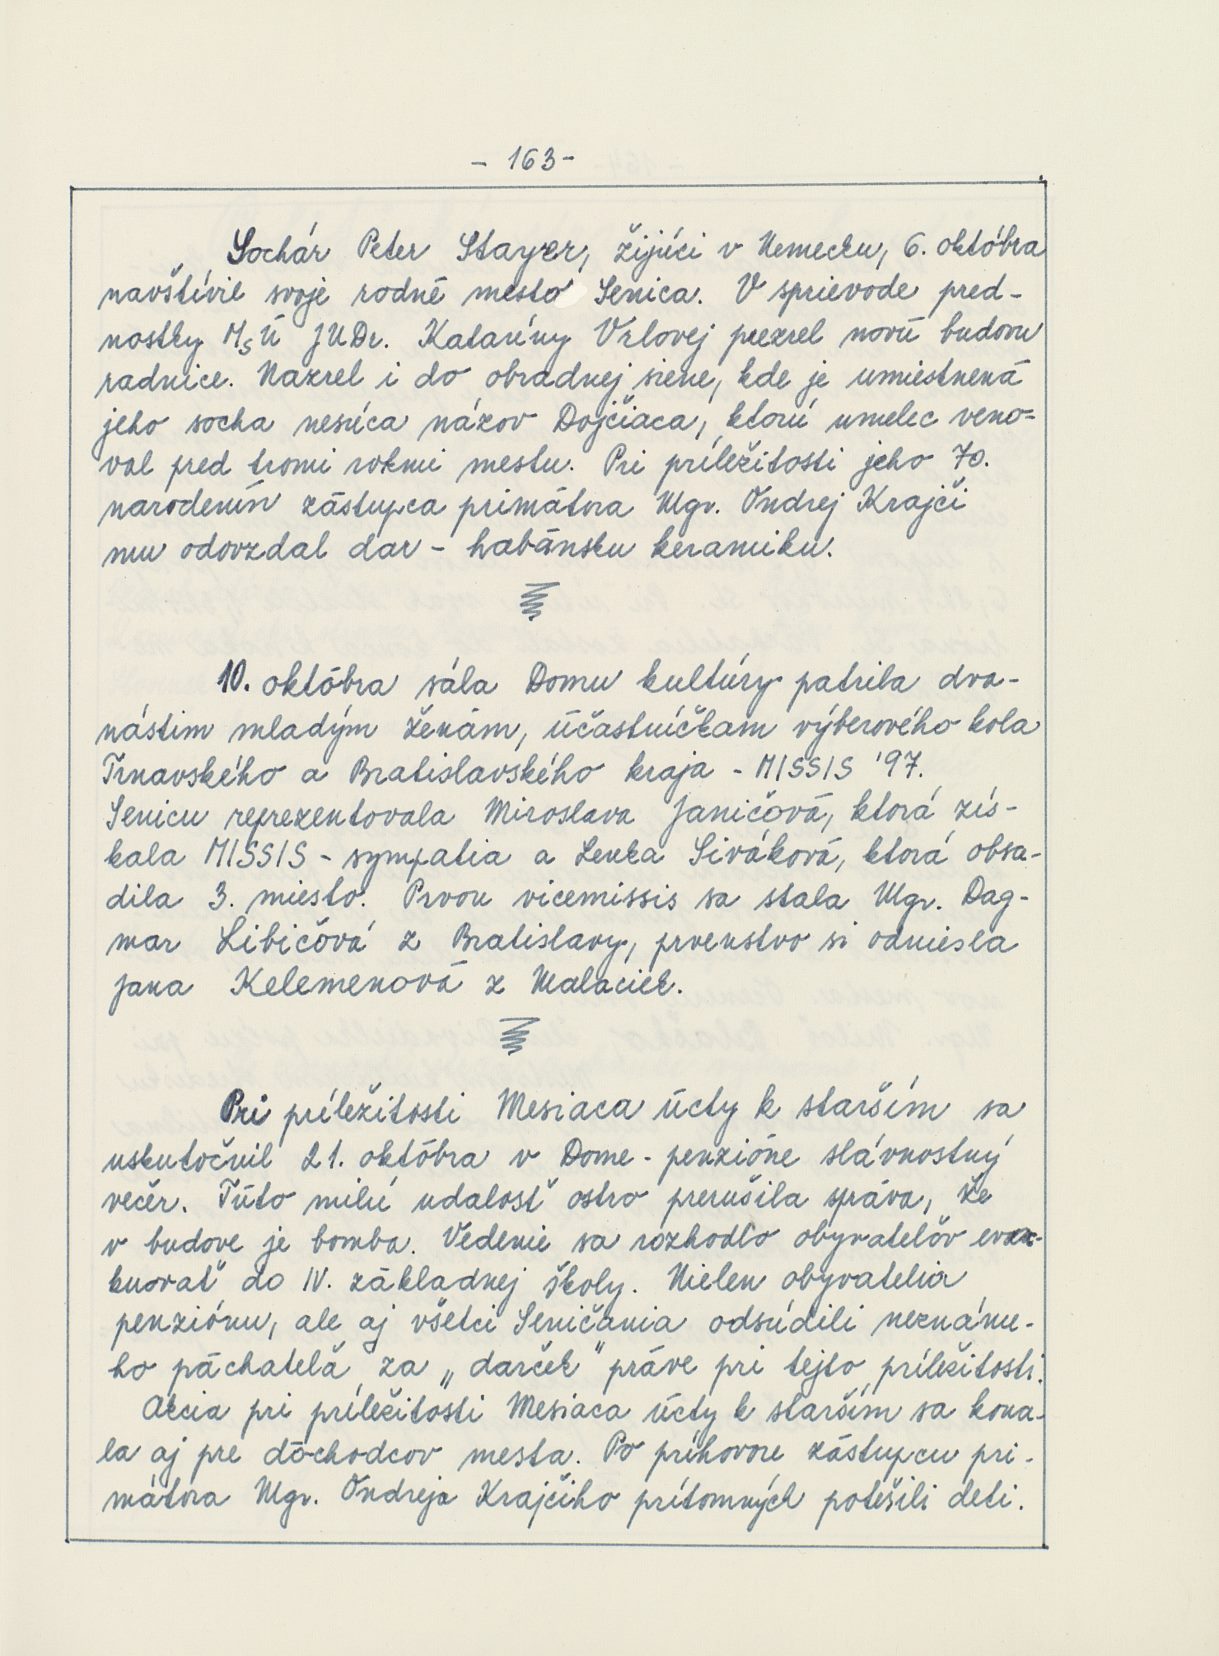 - 163 -
Sochár Peter Stayer, žijúci v Nemecku, 6. októbra
navštívil svoje rodné mesto Senica. V sprievode pred-
nostky MsÚ JUDr. Kataríny Vrlovej prezrel novú budovu
radnice. Nazrel i do obradnej siene, kde je umiestnená
jeho socha nesúca názov Dojčiaca, ktorú umelec veno-
val pred tromi rokmi mestu. Pri príležitosti jeho 70.
narodenín zástupca primátora Mgr. Ondrej Krajči
mu odovzdal dar - habánsku keramiku.
10. októbra sála Domu kultúry patrila dva-
nástim mladým ženám, účastníčkam výberového kola
Trnavského a Bratislavského kraja - MISSIS '97.
Senicu reprezentovala Miroslava Janičová, ktorá zís-
kala MISSIS - sympatia a Lenka Siváková, ktorá obsa-
dila 3. miesto. Prvou vicemissis sa stala Mgr. Dag-
mar Libičová z Bratislavy, prvenstvo si odniesla
Jana Kelemenová z Malaciek.
Pri príležitosti Mesiaca úcty k starším sa
uskutočnil 21. októbra v Dome - penzióne slávnostný
večer. Túto milú udalosť ostro prerušila správa, že
v budove je bomba. Vedenie sa rozhodlo obyvateľov eva-
kuovať do IV. základnej školy. Nielen obyvatelia
penziónu, ale aj všetci Seničania odsúdili neznáme-
ho páchateľa za „darček" práve pri tejto príležitosti.
Akcia pri príležitosti Mesiaca úcty k starším sa kona-
la aj pre dôchodcov mesta. Po príhovore zástupcu pri-
mátora Mgr. Ondreja Krajčiho prítomných potešili deti.